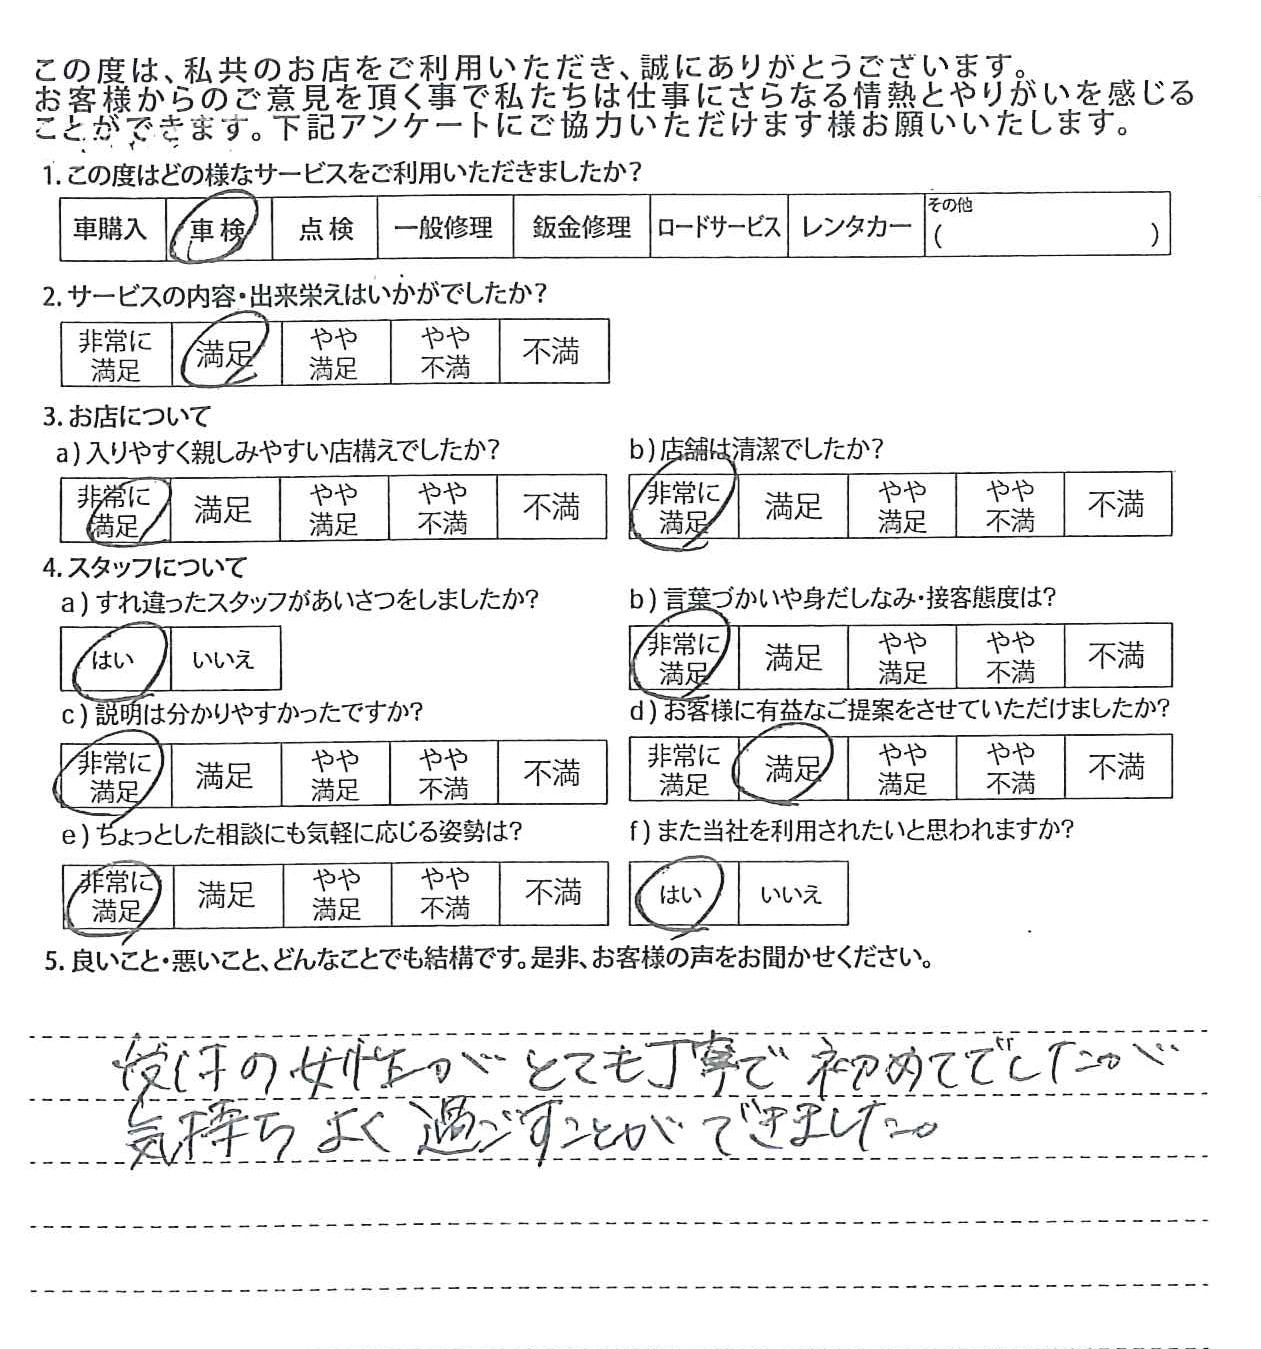 この度は、私共のお店をご利用いただき、誠にありがとうございます。
お客様からのご意見を頂く事で私たちは仕事にさらなる情熱とやりがいを感じる
ことができます。下記アンケートにご協力いただけます様お願いいたします。
1. この度はどの様なサービスをご利用いただきましたか?
車購入 車検 点検 一般修理 鈑金修理 ロードサービス レンタカー その他 ( )
2. サービスの内容・出来栄えはいかがでしたか?
非常に満足 満足 やや満足 やや不満 不満
3. お店について
a) 入りやすく親しみやすい店構えでしたか?
非常に満足 満足 やや満足 やや不満 不満
b) 店舗は清潔でしたか?
非常に満足 満足 やや満足 やや不満 不満
4. スタッフについて
a) すれ違ったスタッフがあいさつをしましたか?
はい いいえ
b) 言葉づかいや身だしなみ・接客態度は?
非常に満足 満足 やや満足 やや不満 不満
c) 説明は分かりやすかったですか?
非常に満足 満足 やや満足 やや不満 不満
d) お客様に有益なご提案をさせていただけましたか?
非常に満足 満足 やや満足 やや不満 不満
e) ちょっとした相談にも気軽に応じる姿勢は?
非常に満足 満足 やや満足 やや不満 不満
f) また当社を利用されたいと思われますか?
はい いいえ
5. 良いこと・悪いこと、どんなことでも結構です。是非、お客様の声をお聞かせください。
受付の女性がとても丁寧で初めてでしたが
気持ちよく過ごすことができました。